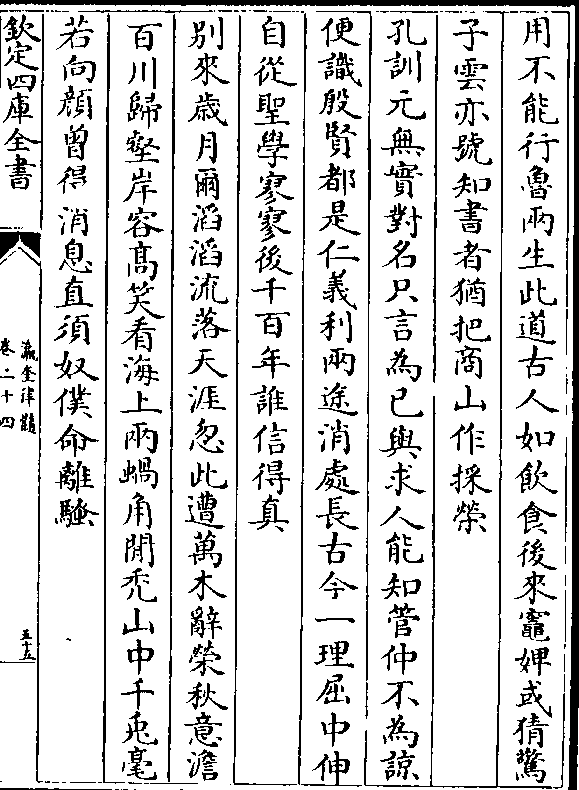 用不能行魯兩生此道古人如飲食後來竈婢或猜驚
子雲亦號知書者猶把商山作採榮
孔訓元無實對名只言為已與求人能知管仲不為諒
便識殷賢都是仁義利兩途消處長古今一理屈中伸
自從聖學寥寥後千百年誰信得真
别來歲月爾滔滔流落天涯忽此遭萬木辭榮秋意澹
百川歸壑岸容髙笑看海上兩蝸角閒禿山中千兎毫
若向顔曾得消息直須奴僕命離騷
欽定四庫全書
瀛奎律髓
卷二十四
五十五